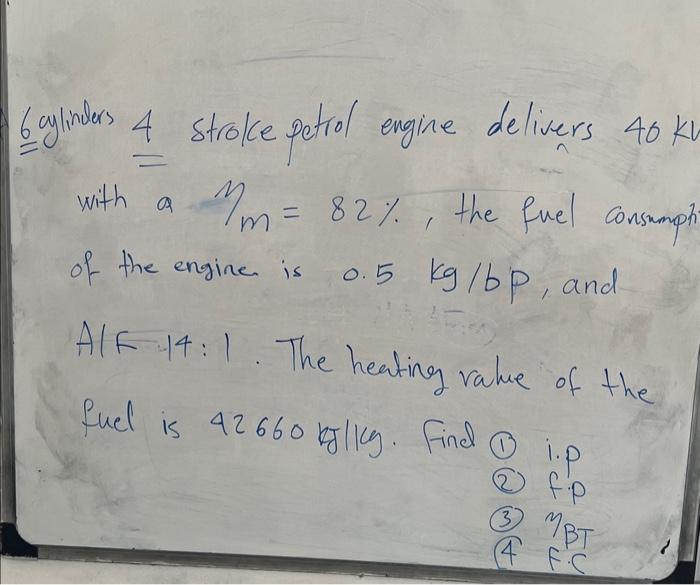 6 cylinders 4 stroke petrol engine delivers 40 k
with a ηm = 82%, the fuel consumpti
of the engine is 0.5 kg/bp, and
A/F 14:1. The heating value of the
fuel is 42660 kJ/kg. Find ① i.p
② f.p
③ ηBT
④ F.C